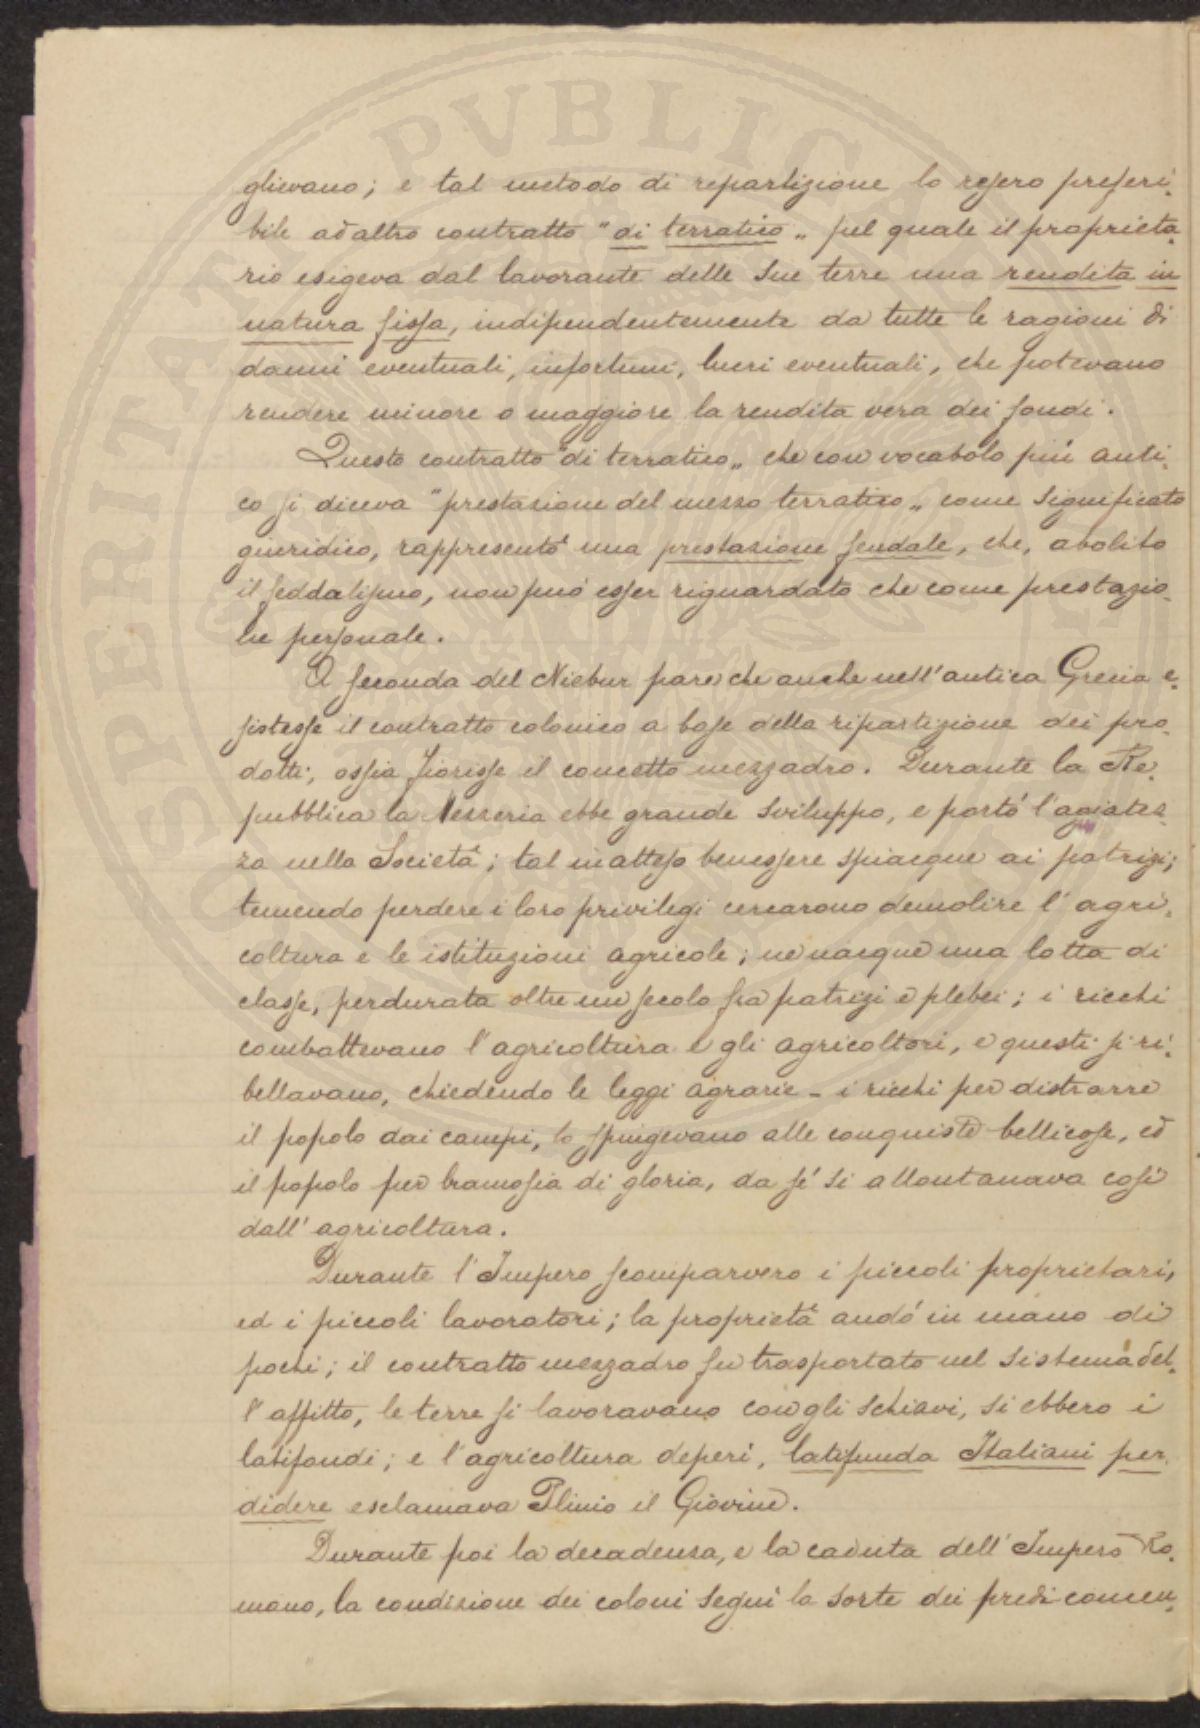 glievano; e tal metodo di repartizione lo resero preferi-
bile ad altro contratto "di terratico„ pel quale il proprieta-
rio esigeva dal lavorante delle sue terre una rendita in
natura fissa, indipendentemente da tutte le ragioni di
danni eventuali, infortuni, lucri eventuali, che potevano
rendere minore o maggiore la rendita vera dei fondi.
Questo contratto "di terratico„ che con vocabolo più anti-
co si diceva "prestazione del mezzo terratico„ come significato
giuridico, rappresentò una prestazione feudale, che, abolito
il feddalismo, non può esser riguardato che come prestazio-
ne personale.
A seconda del Niebur pare che anche nell'antica Grecia e-
sistesse il contratto colonico a base della ripartizione dei pro-
dotti; ossia fiorisse il concetto mezzadro. Durante la Re-
pubblica la Mezzeria ebbe grande sviluppo, e portò l'agiatez-
za nella Società; tal inatteso benessere spiacque ai patrizi;
temendo perdere i loro privilegi cercarono demolire l'agri-
coltura e le istituzioni agricole; ne nacque una lotta di
classe, perdurata oltre un secolo fra patrizi e plebei; i ricchi
combattevano l'agricoltura e gli agricoltori, e questi si ri-
bellavano, chiedendo le leggi agrarie - i ricchi per distrarre
il popolo dai campi, lo spingevano alle conquiste bellicose, ed
il popolo per bramosia di gloria, da sé si allontanava così
dall'agricoltura.
Durante l'Impero scomparvero i piccoli proprietari,
ed i piccoli lavoratori; la proprietà andò in mano di
pochi; il contratto mezzadro fu trasportato nel sistema del-
l'affitto, le terre si lavoravano con gli schiavi, si ebbero i
latifondi; e l'agricoltura deperì, latifunda Italiani per-
didere esclamava Plinio il Giovine.
Durante poi la decadenza, e la caduta dell'Impero Ro-
mano, la condizione dei coloni seguì la sorte dei predi concen-
PVBLICA
SPERITAT